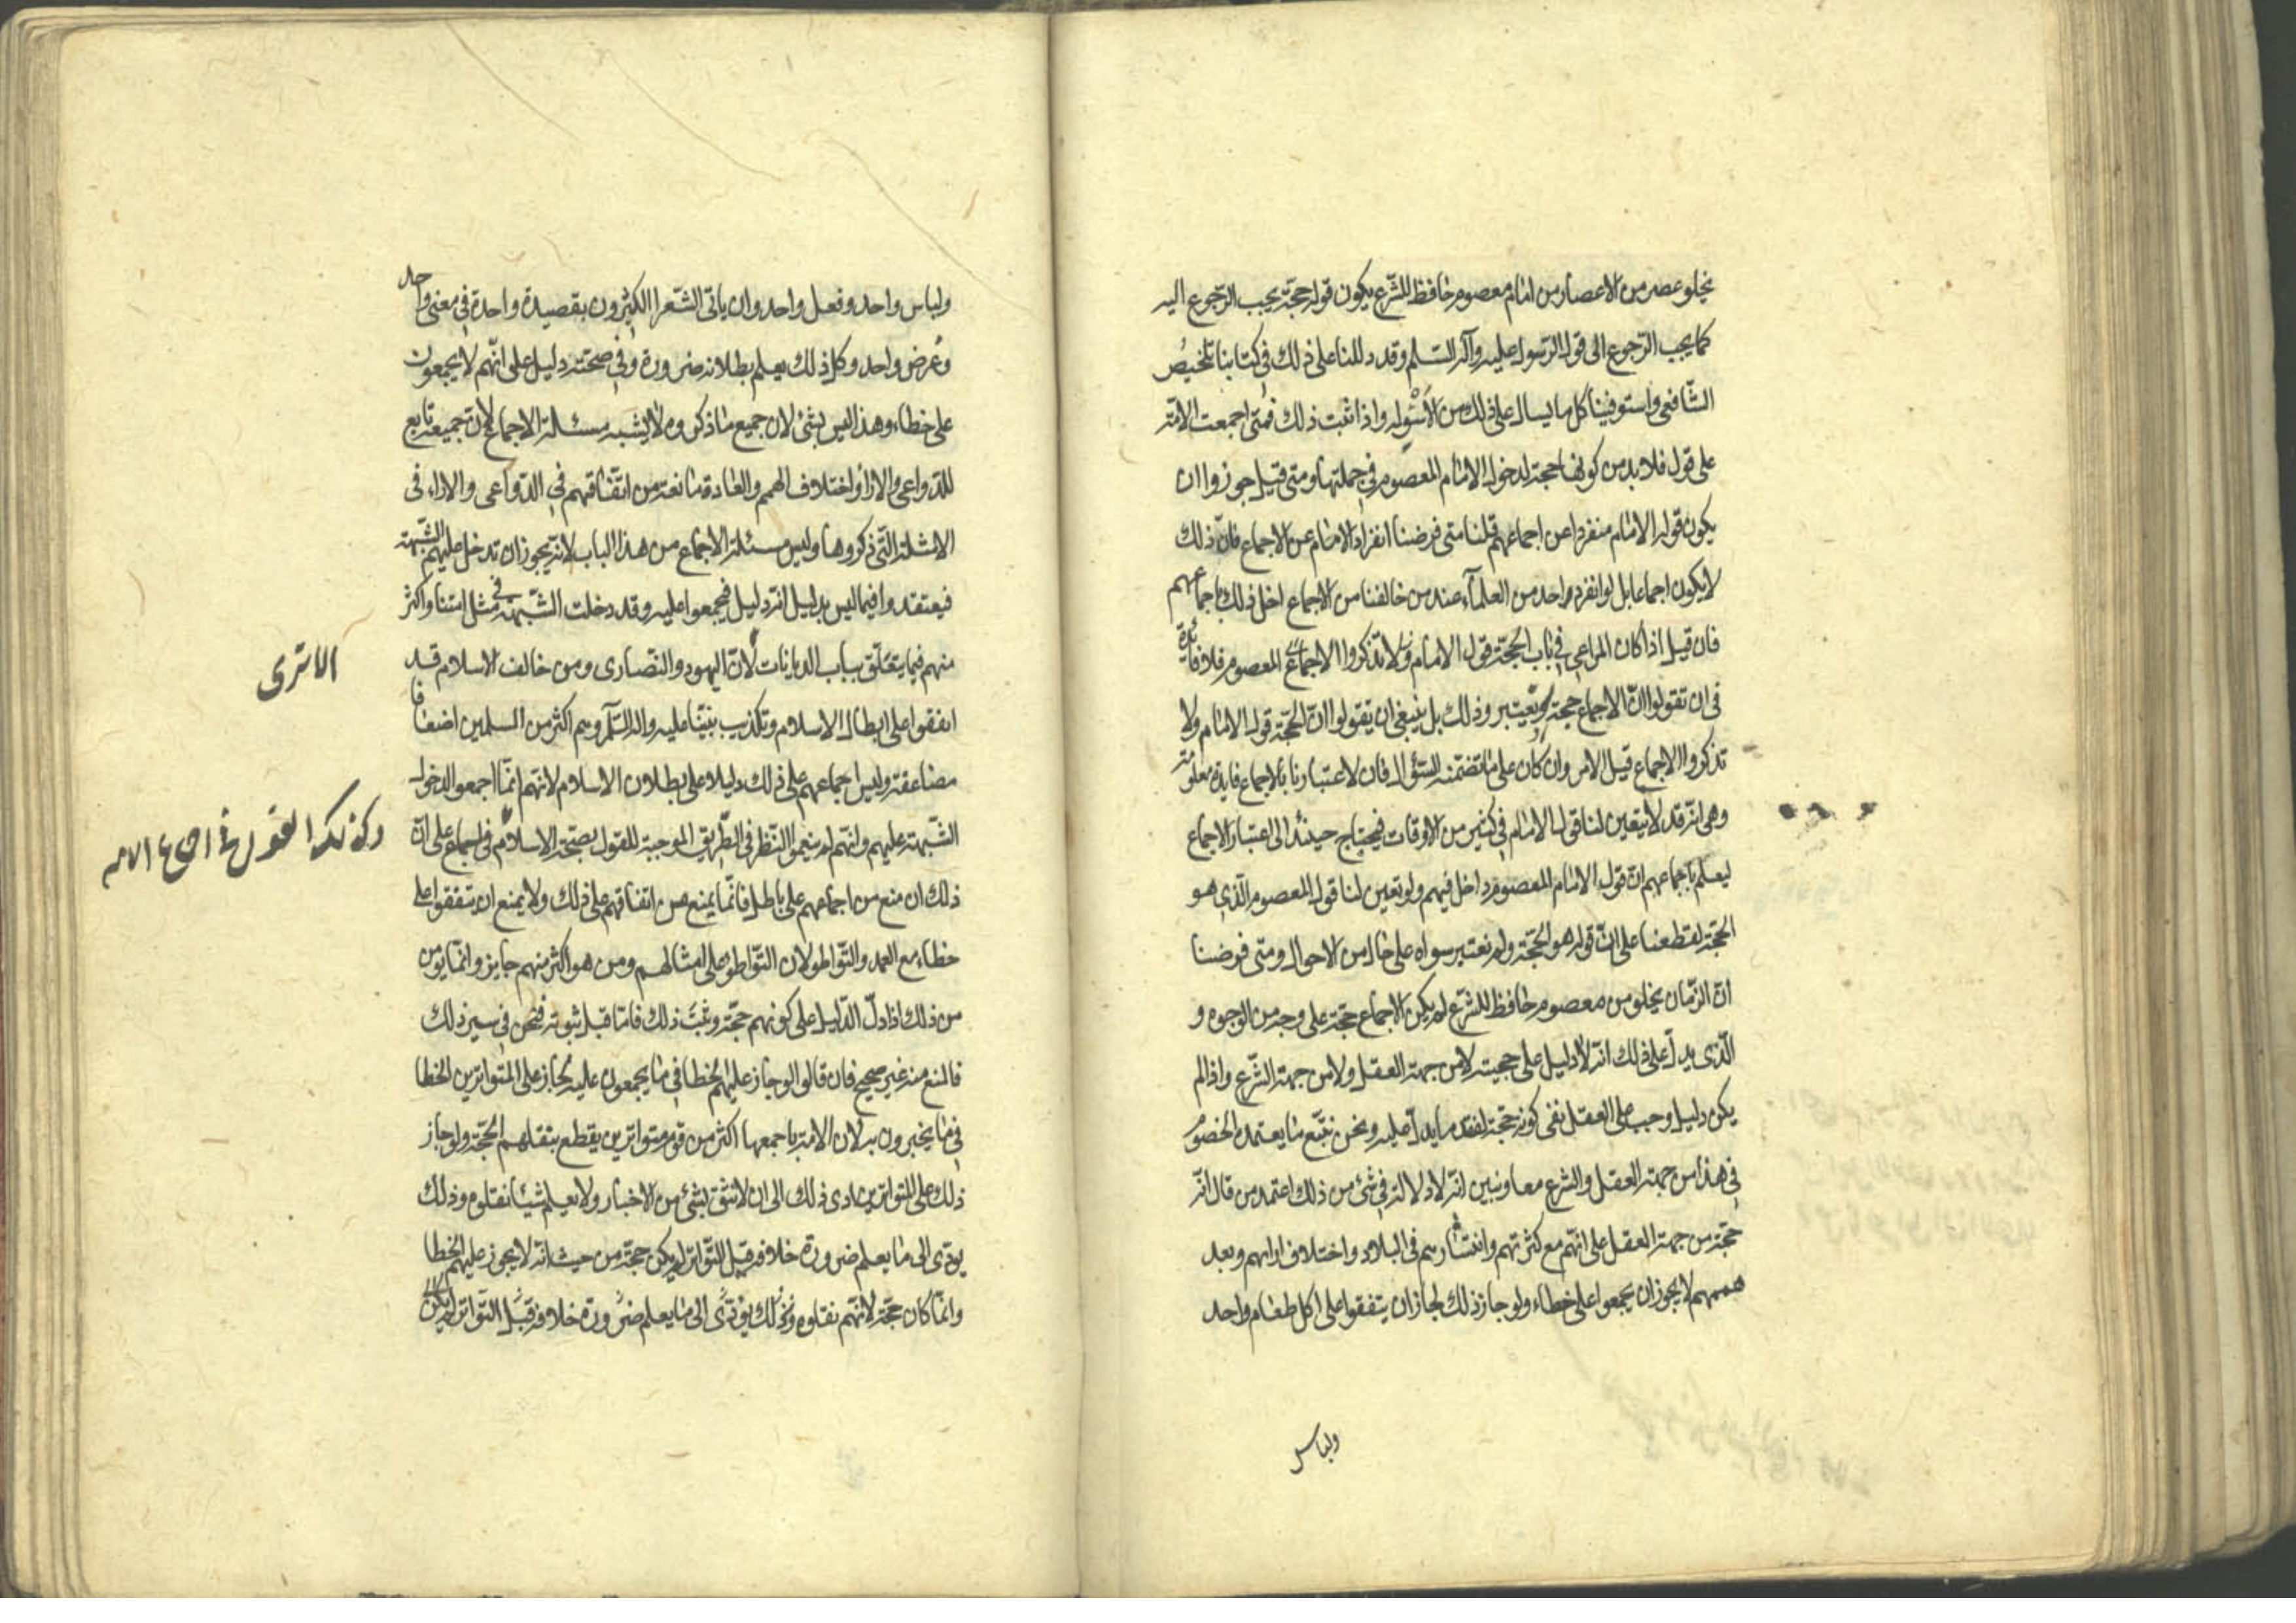 يخلو عصر من الاعصار من امام معصوم حافظ للشرع يكون قوله حجة يجب الرجوع اليه
كما يجب الرجوع الى قول الرسول عليه وآله السلم وقد دللنا على ذلك في كتابنا تلخيص
الشافعي واستوفينا كل ما يسال على ذلك من الاسئوله واذا ثبت ذلك فمتى اجمعت الامة
على قول فلا بد من كونها حجة لدخول الامام المعصوم في جملتها ومتى قيل جوزوا ان
يكون قول الامام منفردا عن اجماعهم قلنا متى فرضنا انفراد الامام عن الاجماع فان ذلك
لا يكون اجماعا بل لو انفرد واحد من العلماء عند من خالفنا من الاجماع اخل ذلك باجماعهم
فان قيل اذا كان المراعى في باب الحجة قول الامام ولا تذكروا الاجماع المعصوم فلا فائدة
في ان تقولوا ان الاجماع حجة وتعتبر وذلك بل ينبغي ان تقولوا ان الحجة قول الامام ولا
تذكروا الاجماع قيل الامر وان كان على ما تضمنه السؤال فان لاعتبارنا بالاجماع فايدة معلومة
وهي انه قد لا يتعين لنا قول الامام في كثير من الاوقات فيحتاج حينئذ الى اعتبار الاجماع
ليعلم باجماعهم ان قول الامام المعصوم داخل فيهم ولو تعين لنا قول المعصوم الذي هو
الحجة لقطعنا على ان قوله هو الحجة ولم نعتبر سواه على حال من الاحوال ومتى فرضنا
ان الزمان يخلو من معصوم حافظ للشرع لم يكن الاجماع حجة على وجه من الوجوه و
الذي يدل على ذلك انه لا دليل على حجيته لا من جهة العقل ولا من جهة الشرع واذا لم
يكن دليل وجب على العقل نفى كونه حجة لفقد ما يدل عليه ونحن نتبع ما يعتمده الخصوم
في هذا من جهة العقل والشرع معا ونبين انه لا دلالة في شئ من ذلك اعتمد من قال انه
حجة من جهة العقل على انهم مع كثرتهم وانتشارهم في البلاد واختلاف ارائهم وبعد
هممهم لا يجوز ان يجمعوا على خطاء ولو جاز ذلك لجاز ان يتفقوا على اكل طعام واحد
ولباس
ولباس واحد وفعل واحد وان ياتى الشعرا الكثيرون بقصيدة واحدة في معنى واحد
وغرض واحد وكل ذلك يعلم بطلانه ضرورة وفي صحته دليل على انهم لا يجمعون
على خطاء وهذا ليس بشئ لان جميع ما ذكروه لا يشبه مسئلة الاجماع لان جميعه تابع
للدواعي والارا واختلاف الهمم والعادة مانعة من اتفاقهم في الدواعى والاراء في
الامثلة التي ذكروها وليس مسئلة الاجماع من هذا الباب لانه يجوز ان تدخل عليهم الشبهة
فيعتقدوا فيما ليس بدليل انه دليل فيجمعوا عليه وقد دخلت الشبهة في مثل امتنا واكثر
منهم فيما يتعلق بباب الديانات لان اليهود والنصارى ومن خالف الاسلام قد
الا ترى
اتفقوا على ابطال الاسلام وتكذيب نبينا عليه واله السلم وهم اكثر من المسلمين اضعافا
مضاعفة وليس اجماعهم على ذلك دليلا على بطلان الاسلام لانهم انما اجمعوا لدخول
الشبهة عليهم وانهم لم ينعموا النظر في الطريق الموجبة للقول بصحة الاسلام فاجماع على ان
وكذلك القول في اجماع الامه
ذلك ان منع من اجماعهم على باطل فانما يمنع من اتفاقهم على ذلك ولا يمنع ان يتفقوا على
خطاء مع العمد والتواطو لان التواطو على امثالهم ومن هو اكثر منهم جايز وانما يومن
من ذلك اذا دل الدليل على كونهم حجة وثبت ذلك فاما قبل ثبوته فنحن في سير ذلك
فالمنع منه غير صحيح فان قالوا لو جاز عليهم الخطا في ما يجمعون عليه لجاز على المتواترين الخطا
في ما يخبرون به لان الامة باجمعها اكثر من قوم متواترين يقطع بنقلهم الحجة ولو جاز
ذلك على المتواترين ادى ذلك الى ان لا نثق بشئ من الاخبار ولا يعلم شيئا نقلوه وذلك
يودى الى ما يعلم ضرورة خلافه قيل التواتر لم يكن حجة من حيث انه لا يجوز عليهم الخطا
وانما كان حجة لانهم نقلوه وذلك يؤدى الى ما يعلم ضرورة خلافه قيل التواتر لم يكن